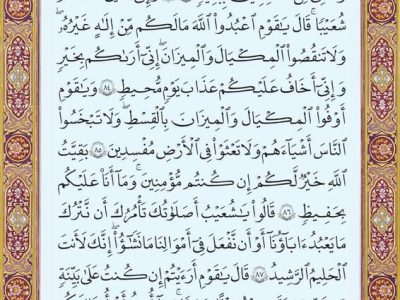 شُعَيْبًا ۚ قَالَ يَـٰقَوْمِ ٱعْبُدُوا۟ ٱللَّهَ مَا لَكُم مِّنْ إِلَـٰهٍ غَيْرُهُۥ ۖ
وَلَا تَنقُصُوا۟ ٱلْمِكْيَالَ وَٱلْمِيزَانَ ۖ إِنِّىٓ أَرَىٰكُم بِخَيْرٍ
وَإِنِّىٓ أَخَافُ عَلَيْكُمْ عَذَابَ يَوْمٍ مُّحِيطٍ ٨٤ وَيَـٰقَوْمِ
أَوْفُوا۟ ٱلْمِكْيَالَ وَٱلْمِيزَانَ بِٱلْقِسْطِ ۖ وَلَا تَبْخَسُوا۟
ٱلنَّاسَ أَشْيَآءَهُمْ وَلَا تَعْثَوْا۟ فِى ٱلْأَرْضِ مُفْسِدِينَ ٨٥ بَقِيَّتُ
ٱللَّهِ خَيْرٌ لَّكُمْ إِن كُنتُم مُّؤْمِنِينَ ۚ وَمَآ أَنَا۠ عَلَيْكُم
بِحَفِيظٍ ٨٦ قَالُوا۟ يَـٰشُعَيْبُ أَصَلَوٰتُكَ تَأْمُرُكَ أَن نَّتْرُكَ
مَا يَعْبُدُ ءَابَآؤُنَآ أَوْ أَن نَّفْعَلَ فِىٓ أَمْوَٰلِنَا مَا نَشَـٰٓؤُا۟ ۖ إِنَّكَ لَأَنتَ
ٱلْحَلِيمُ ٱلرَّشِيدُ ٨٧ قَالَ يَـٰقَوْمِ أَرَءَيْتُمْ إِن كُنتُ عَلَىٰ بَيِّنَةٍ